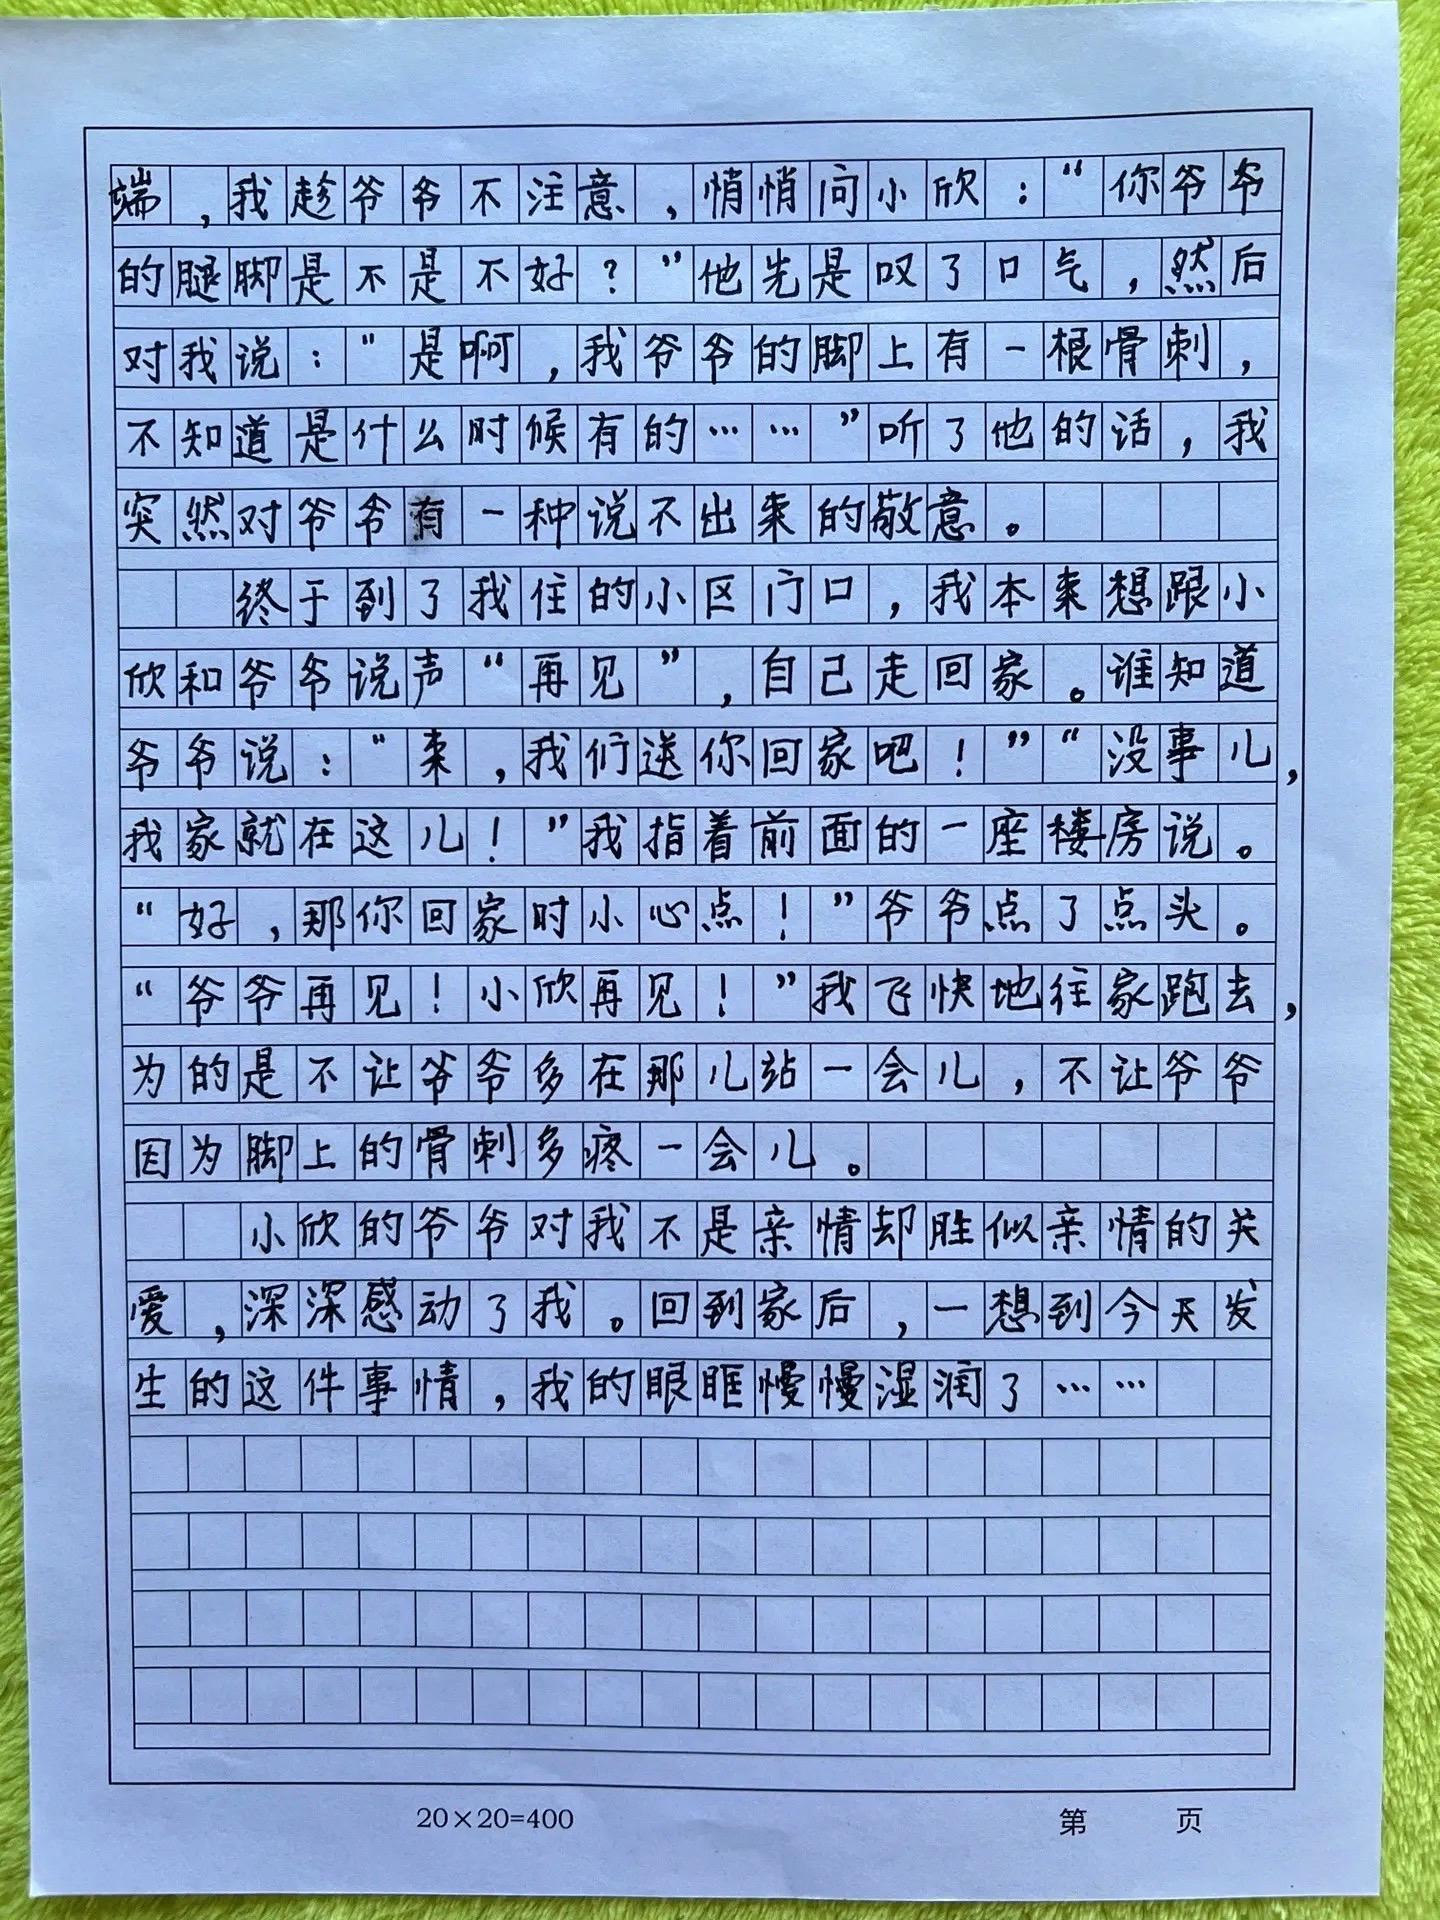 端，我趁爷爷不注意，悄悄问小欣：“你爷爷
的腿脚是不是不好？”他先是叹了口气，然后
对我说：“是啊，我爷爷的脚上有一根骨刺，
不知道是什么时候有的……”听了他的话，我
突然对爷爷有一种说不出来的敬意。
终于到了我住的小区门口，我本来想跟小
欣和爷爷说声“再见”，自己走回家。谁知道
爷爷说：“来，我们送你回家吧！”“没事儿，
我家就在这儿！”我指着前面的一座楼房说。
“好，那你回家时小心点！”爷爷点了点头。
“爷爷再见！小欣再见！”我飞快地往家跑去，
为的是不让爷爷多在那儿站一会儿，不让爷爷
因为脚上的骨刺多疼一会儿。
小欣的爷爷对我不是亲情却胜似亲情的关
爱，深深感动了我。回到家后，一想到今天发
生的这件事情，我的眼眶慢慢湿润了……
20×20=400
第 页